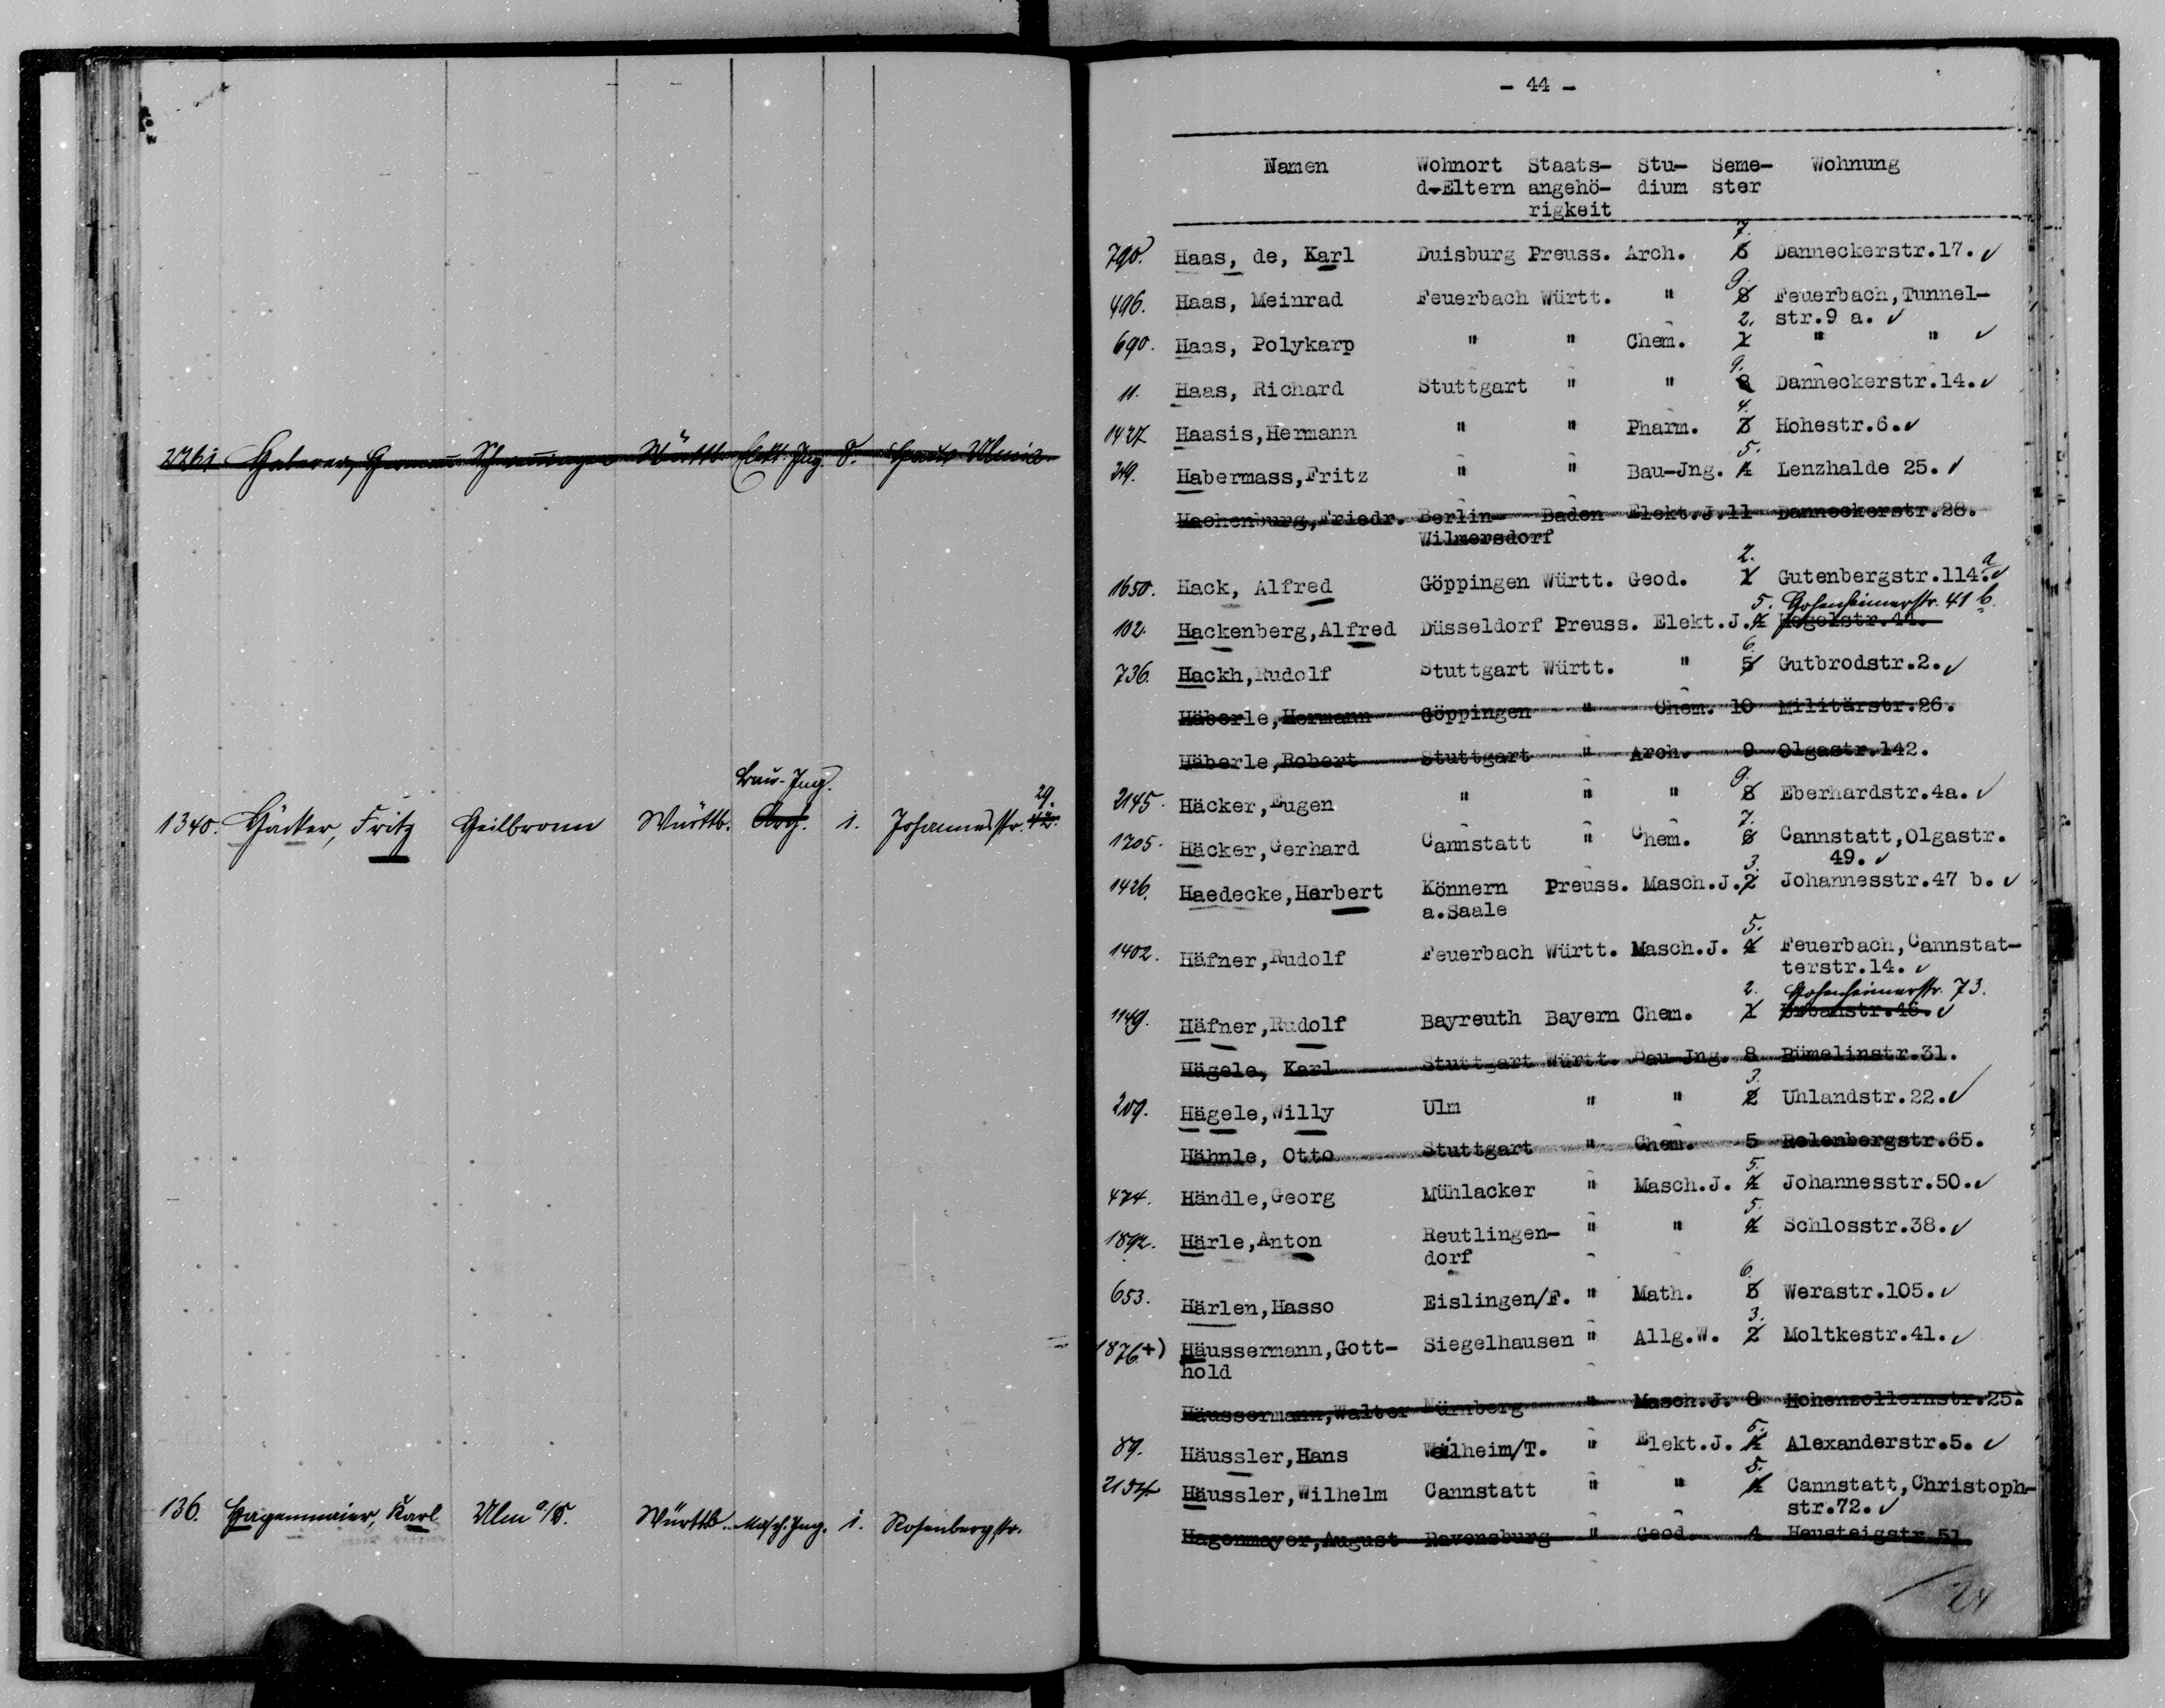 2261 Haberer, Herman Schwenningen Württb. Elekt. Ing. 8.
Bau-Ing.
29.
1340. Häcker, Fritz Heilbronn Württb. Arch. 1. Johannesstr. 42.
136. Hagenmaier, Karl Ulm a/D. Württb. Masch. Ing. 1. Rosenbergstr.
- 44 -
Namen Wohnort Staats- Stu- Seme- Wohnung
d.Eltern angehö- dium ster
rigkeit
7.
790. Haas, de, Karl Duisburg Preuss. Arch. 6 Danneckerstr.17. ✓
9.
496. Haas, Meinrad Feuerbach Württ. " 8 Feuerbach,Tunnel-
2. str.9 a. ✓
690. Haas, Polykarp " " Chem. 1 " " ✓
9.
11. Haas, Richard Stuttgart " " 8 Danneckerstr.14. ✓
4.
1427. Haasis,Hermann " " Pharm. 3 Hohestr.6. ✓
5.
349. Habermass,Fritz " " Bau-Jng. 4 Lenzhalde 25. ✓
Hachenburg,Friedr. Berlin- Baden Elekt.J. 11 Danneckerstr.28.
Wilmersdorf
2.
1650. Hack, Alfred Göppingen Württ. Geod. 1 Gutenbergstr.114.a ✓
5. Hohenheimerstr. 41 b.
102. Hackenberg,Alfred Düsseldorf Preuss. Elekt.J. 4 Hegelstr.41.
6.
736. Hackh,Rudolf Stuttgart Württ. " 5 Gutbrodstr.2. ✓
Häberle,Hermann Göppingen " Chem. 10 Militärstr.26.
Häberle,Robert Stuttgart " Arch. 9 Olgastr.142.
9.
2145. Häcker,Eugen " " " 8 Eberhardstr.4a. ✓
7.
1205. Häcker,Gerhard Cannstatt " Chem. 6 Cannstatt,Olgastr.
3. 49. ✓
1426. Haedecke,Herbert Könnern Preuss. Masch.J. 2 Johannesstr.47 b. ✓
a.Saale
5.
1402. Häfner,Rudolf Feuerbach Württ. Masch.J. 4 Feuerbach,Cannstat-
terstr.14. ✓
2. Hohenheimerstr. 73.
1149. Häfner,Rudolf Bayreuth Bayern Chem. 1 Urbanstr.46. ✓
Hägele, Karl Stuttgart Württ. Bau-Jng. 8 Rümelinstr.31.
3.
209. Hägele,Willy Ulm " " 2 Uhlandstr.22. ✓
Hähnle, Otto Stuttgart " Chem. 5 Relenbergstr.65.
5.
474. Händle,Georg Mühlacker " Masch.J. 4 Johannesstr.50. ✓
5.
1892. Härle,Anton Reutlingen- " " 4 Schlosstr.38. ✓
dorf
6.
653. Härlen,Hasso Eislingen/F. " Math. 5 Werastr.105. ✓
3.
1876 +) Häussermann,Gott- Siegelhausen " Allg.W. 2 Moltkestr.41. ✓
hold
Häussermann,Walter Nürnberg " Masch.J. 8 Hohenzollernstr.25.
5.
89. Häussler,Hans Weilheim/T. " Elekt.J. 4 Alexanderstr.5. ✓
5.
2154. Häussler,Wilhelm Cannstatt " " 4 Cannstatt,Christoph-
str.72. ✓
Hagenmayer,August Ravensburg " Geod. 4 Heusteigstr.51.
24